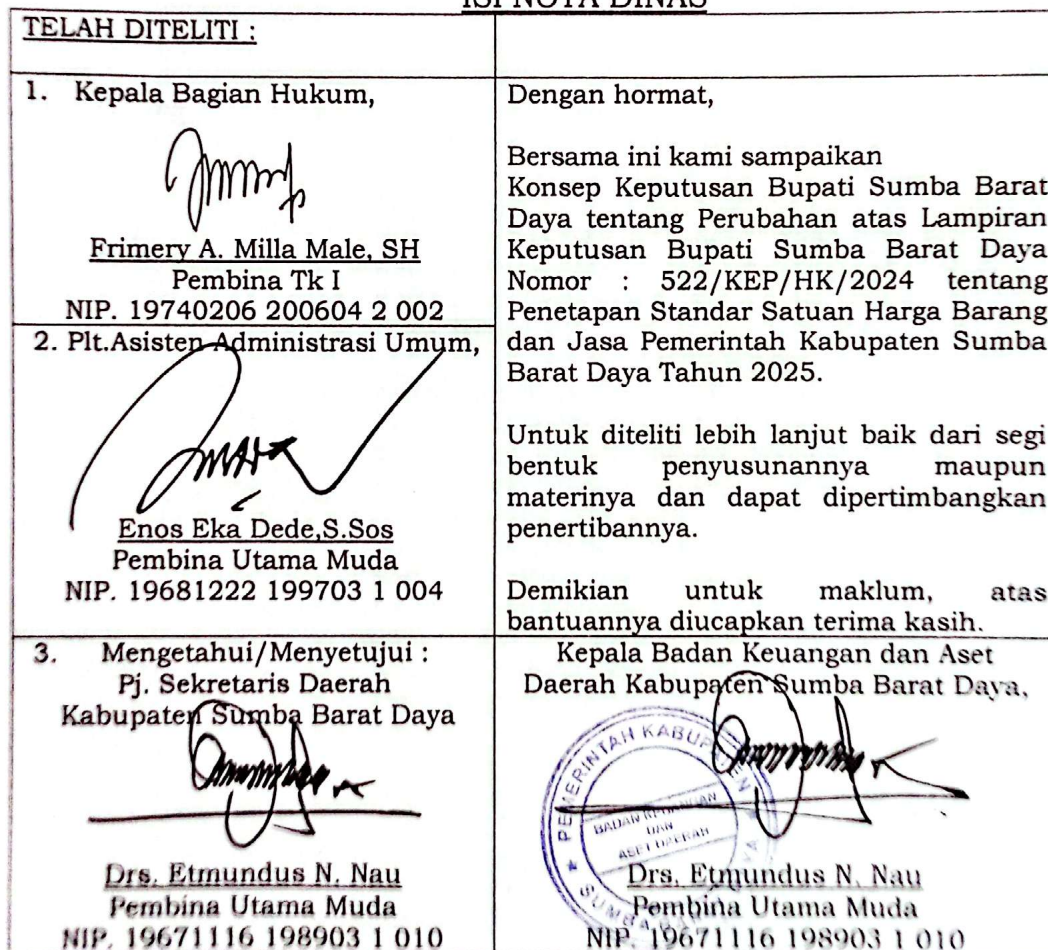 ISI NOTA DINAS
TELAH DITELITI :
1. Kepala Bagian Hukum,
Frimery A. Milla Male, SH
Pembina Tk I
NIP. 19740206 200604 2 002
2. Plt.Asisten Administrasi Umum,
Enos Eka Dede,S.Sos
Pembina Utama Muda
NIP. 19681222 199703 1 004
3. Mengetahui/Menyetujui :
Pj. Sekretaris Daerah
Kabupaten Sumba Barat Daya
Drs. Etmundus N. Nau
Pembina Utama Muda
NIP. 19671116 198903 1 010
Dengan hormat,
Bersama ini kami sampaikan
Konsep Keputusan Bupati Sumba Barat
Daya tentang Perubahan atas Lampiran
Keputusan Bupati Sumba Barat Daya
Nomor : 522/KEP/HK/2024 tentang
Penetapan Standar Satuan Harga Barang
dan Jasa Pemerintah Kabupaten Sumba
Barat Daya Tahun 2025.
Untuk diteliti lebih lanjut baik dari segi
bentuk penyusunannya maupun
materinya dan dapat dipertimbangkan
penertibannya.
Demikian untuk maklum, atas
bantuannya diucapkan terima kasih.
Kepala Badan Keuangan dan Aset
Daerah Kabupaten Sumba Barat Daya,
PEMERINTAH KABUPATEN
BADAN KEUANGAN
DAN
ASET DAERAH
SUMBA BARAT DAYA
Drs. Etmundus N. Nau
Pembina Utama Muda
NIP. 19671116 198903 1 010